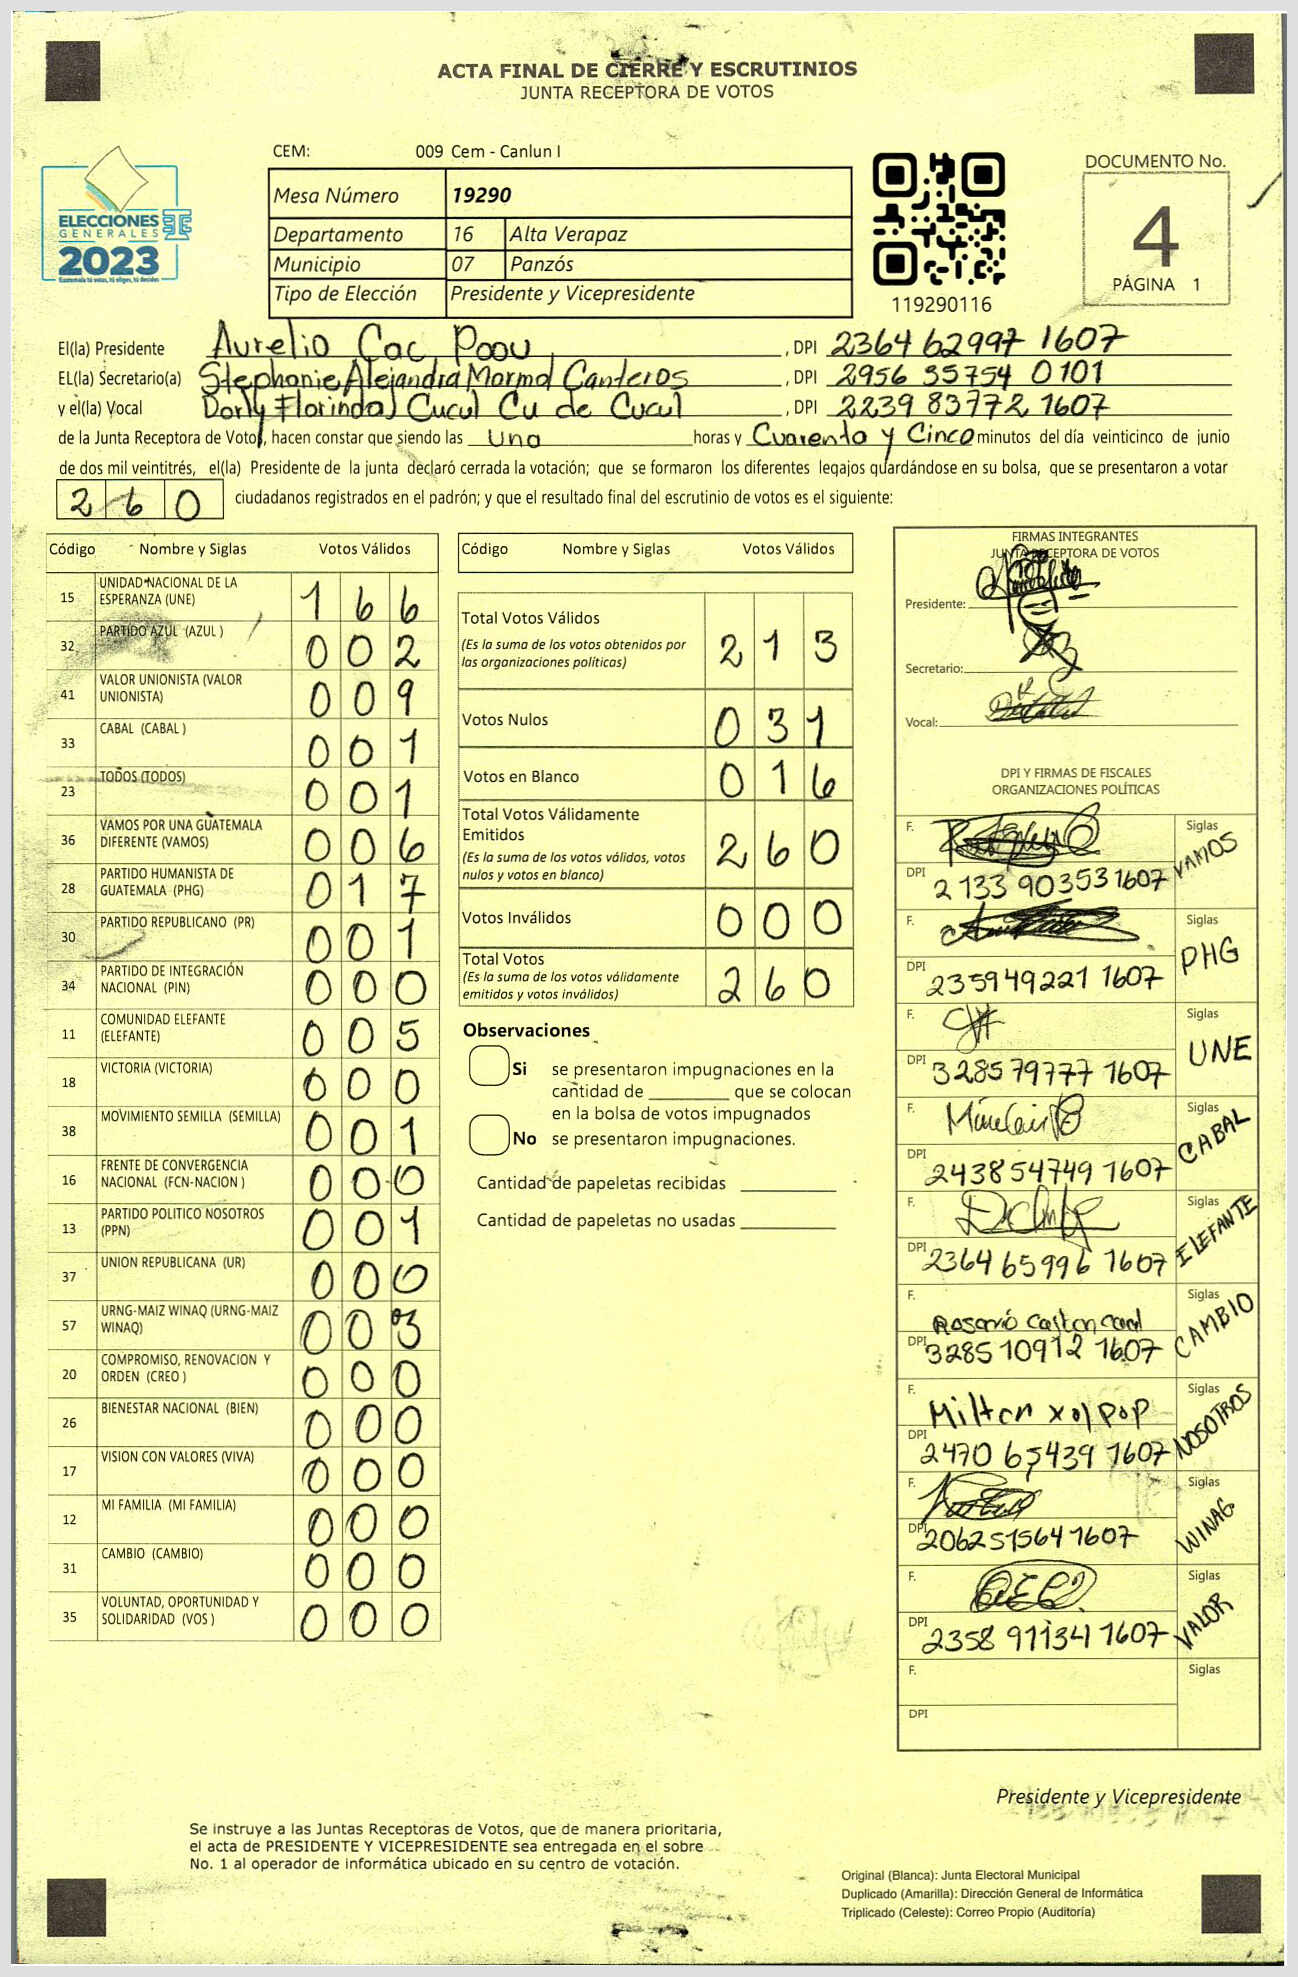 ACTA FINAL DE CIERRE Y ESCRUTINIOS
JUNTA RECEPTORA DE VOTOS
CEM: 009 Cem - Canlun I
DOCUMENTO No.
4
PÁGINA 1
ELECCIONES
GENERALES
2023
Mesa Número 19290
Departamento 16 Alta Verapaz
Municipio 07 Panzós
Tipo de Elección Presidente y Vicepresidente
119290116
El(la) Presidente Aurelio Cac Poou, DPI 2364 62997 1607
EL(la) Secretario(a) Stephanie Alejandra Marmol Canteros, DPI 2956 35754 0101
y el(la) Vocal Dorly Florinda Cucul Cu de Cucul, DPI 2239 83772 1607
de la Junta Receptora de Votos, hacen constar que siendo las Una horas y Cuarenta y Cinco minutos del día veinticinco de junio
de dos mil veintitrés, el(la) Presidente de la junta declaró cerrada la votación; que se formaron los diferentes legajos guardándose en su bolsa, que se presentaron a votar
260 ciudadanos registrados en el padrón; y que el resultado final del escrutinio de votos es el siguiente:
Código Nombre y Siglas Votos Válidos
15 UNIDAD NACIONAL DE LA ESPERANZA (UNE) 166
32 PARTIDO AZUL (AZUL ) 002
41 VALOR UNIONISTA (VALOR UNIONISTA) 009
33 CABAL (CABAL ) 001
23 TODOS (TODOS) 001
36 VAMOS POR UNA GUATEMALA DIFERENTE (VAMOS) 006
28 PARTIDO HUMANISTA DE GUATEMALA (PHG) 017
30 PARTIDO REPUBLICANO (PR) 001
34 PARTIDO DE INTEGRACIÓN NACIONAL (PIN) 000
11 COMUNIDAD ELEFANTE (ELEFANTE) 005
18 VICTORIA (VICTORIA) 000
38 MOVIMIENTO SEMILLA (SEMILLA) 001
16 FRENTE DE CONVERGENCIA NACIONAL (FCN-NACION ) 000
13 PARTIDO POLITICO NOSOTROS (PPN) 001
37 UNION REPUBLICANA (UR) 000
57 URNG-MAIZ WINAQ (URNG-MAIZ WINAQ) 003
20 COMPROMISO, RENOVACION Y ORDEN (CREO ) 000
26 BIENESTAR NACIONAL (BIEN) 000
17 VISION CON VALORES (VIVA) 000
12 MI FAMILIA (MI FAMILIA) 000
31 CAMBIO (CAMBIO) 000
35 VOLUNTAD, OPORTUNIDAD Y SOLIDARIDAD (VOS ) 000
Código Nombre y Siglas Votos Válidos
Total Votos Válidos 213
(Es la suma de los votos obtenidos por
las organizaciones políticas)
Votos Nulos 031
Votos en Blanco 016
Total Votos Válidamente
Emitidos 260
(Es la suma de los votos válidos, votos
nulos y votos en blanco)
Votos Inválidos 000
Total Votos 260
(Es la suma de los votos válidamente
emitidos y votos inválidos)
Observaciones
Si se presentaron impugnaciones en la
cantidad de ________ que se colocan
en la bolsa de votos impugnados
No se presentaron impugnaciones.
Cantidad de papeletas recibidas
Cantidad de papeletas no usadas
FIRMAS INTEGRANTES
JUNTA RECEPTORA DE VOTOS
Presidente:
Secretario:
Vocal:
DPI Y FIRMAS DE FISCALES
ORGANIZACIONES POLÍTICAS
F. Siglas VAMOS
DPI 2133 90353 1607
F. Siglas PHG
DPI 235949221 1607
F. Siglas UNE
DPI 328579777 1607
F. Siglas CABAL
DPI 243854749 1607
F. Siglas ELEFANTE
DPI 2364 65996 1607
F. Rosario Siglas CAMBIO
DPI 3285 10912 1607
F. Milton xol pop Siglas NOSOTROS
DPI 2470 65439 1607
F. Siglas WINAQ
DPI 206251564 1607
F. Siglas VALOR
DPI 2358 91134 1607
F. Siglas
DPI
Presidente y Vicepresidente
Se instruye a las Juntas Receptoras de Votos, que de manera prioritaria,
el acta de PRESIDENTE Y VICEPRESIDENTE sea entregada en el sobre
No. 1 al operador de informática ubicado en su centro de votación.
Original (Blanca): Junta Electoral Municipal
Duplicado (Amarilla): Dirección General de Informática
Triplicado (Celeste): Correo Propio (Auditoría)